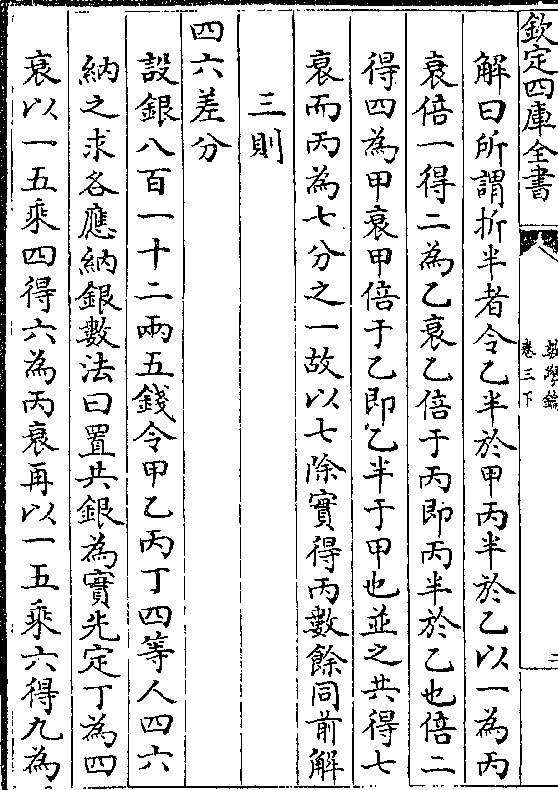 欽定四庫全書
數學鑰
卷三下
二
解曰所謂折半者令乙半於甲丙半於乙以一為丙
衰倍一得二為乙衰乙倍于丙即丙半於乙也倍二
得四為甲衰甲倍于乙即乙半于甲也並之共得七
衰而丙為七分之一故以七除實得丙數餘同前解
三則
四六差分
設銀八百一十二兩五錢令甲乙丙丁四等人四六
納之求各應納銀數法曰置共銀為實先定丁為四
衰以一五乘四得六為丙衰再以一五乘六得九為